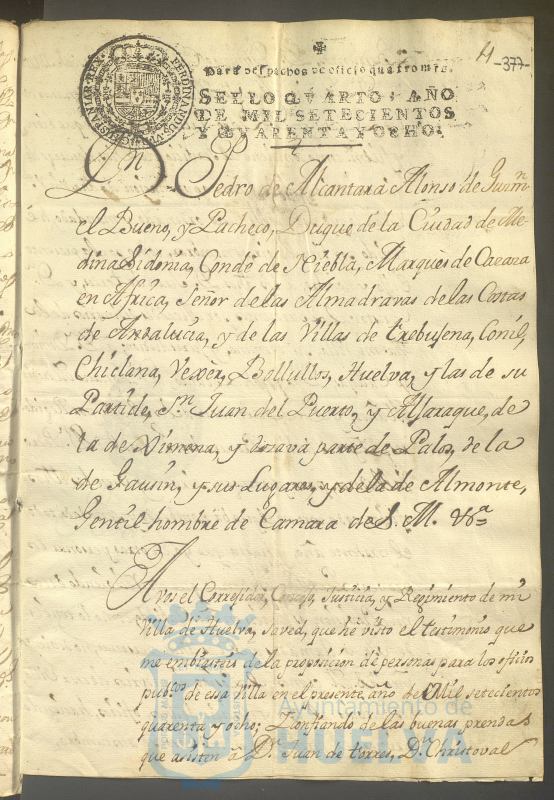 H
-377-
Para despachos de oficio quatro mrs.
SELLO QVARTO, AÑO
DE MIL SETECIENTOS
Y QVARENTA Y OCHO.
Dn. Pedro de Alcantara Alonso de Guzmn.
el Bueno, y Pacheco, Duque de la Ciudad de Me-
dina Sidonia, Conde de Niebla, Marquès de Cazaza
en Africa, Señor de las Almadravas de las Costas
de Andalucia, y de las Villas de trebujena, Conil,
Chiclana, Vexèr, Bollullos, Huelva, y las de su
Partido, Sn. Juan del Puerto, y Aljaraque, de
la de Ximena, y dozava parte de Palos, de la
de Gausin, y sus Lugares, y de la de Almonte,
Gentil hombre de Camara de S. M. &a
A vos el Corregidor, Concejo, Justicia, y Regimiento de mi
Villa de Huelva, saved, que he visto el testimonio que
me embiasteis de la proposicion de personas para los oficios
pubcos. de essa Villa en el presente año de Mil setecientos
quarenta y ocho; Y confiando de las buenas prendas
que asisten à Dn. Juan de torres, Dn. Christoval
Ayuntamiento de
HUELVA